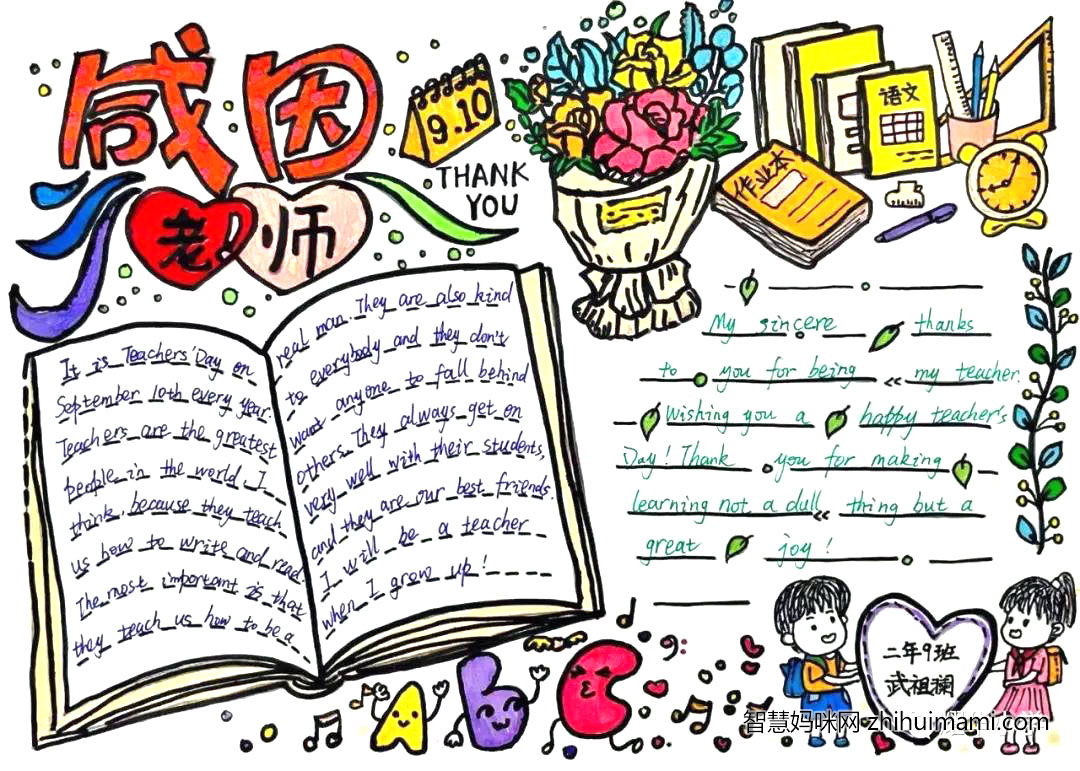 感恩
老师
9.10
THANK
YOU
语文
作业本
It is Teachers' Day on
September 10th every year.
Teachers are the greatest
people in the world. I
think, because they teach
us how to write and read.
The most important is that
they teach us how to be a
real man. They are also kind
to everybody and they don't
want anyone to fall behind
others. They always get on
very well with their students,
and they are our best friends.
I will be a teacher
when I grow up!
My sincere thanks
to you for being my teacher.
Wishing you a happy teacher's
Day! Thank you for making
learning not a dull thing but a
great joy!
A b C
二年9班
武祖斓
智慧妈咪网 zhihuimami.com